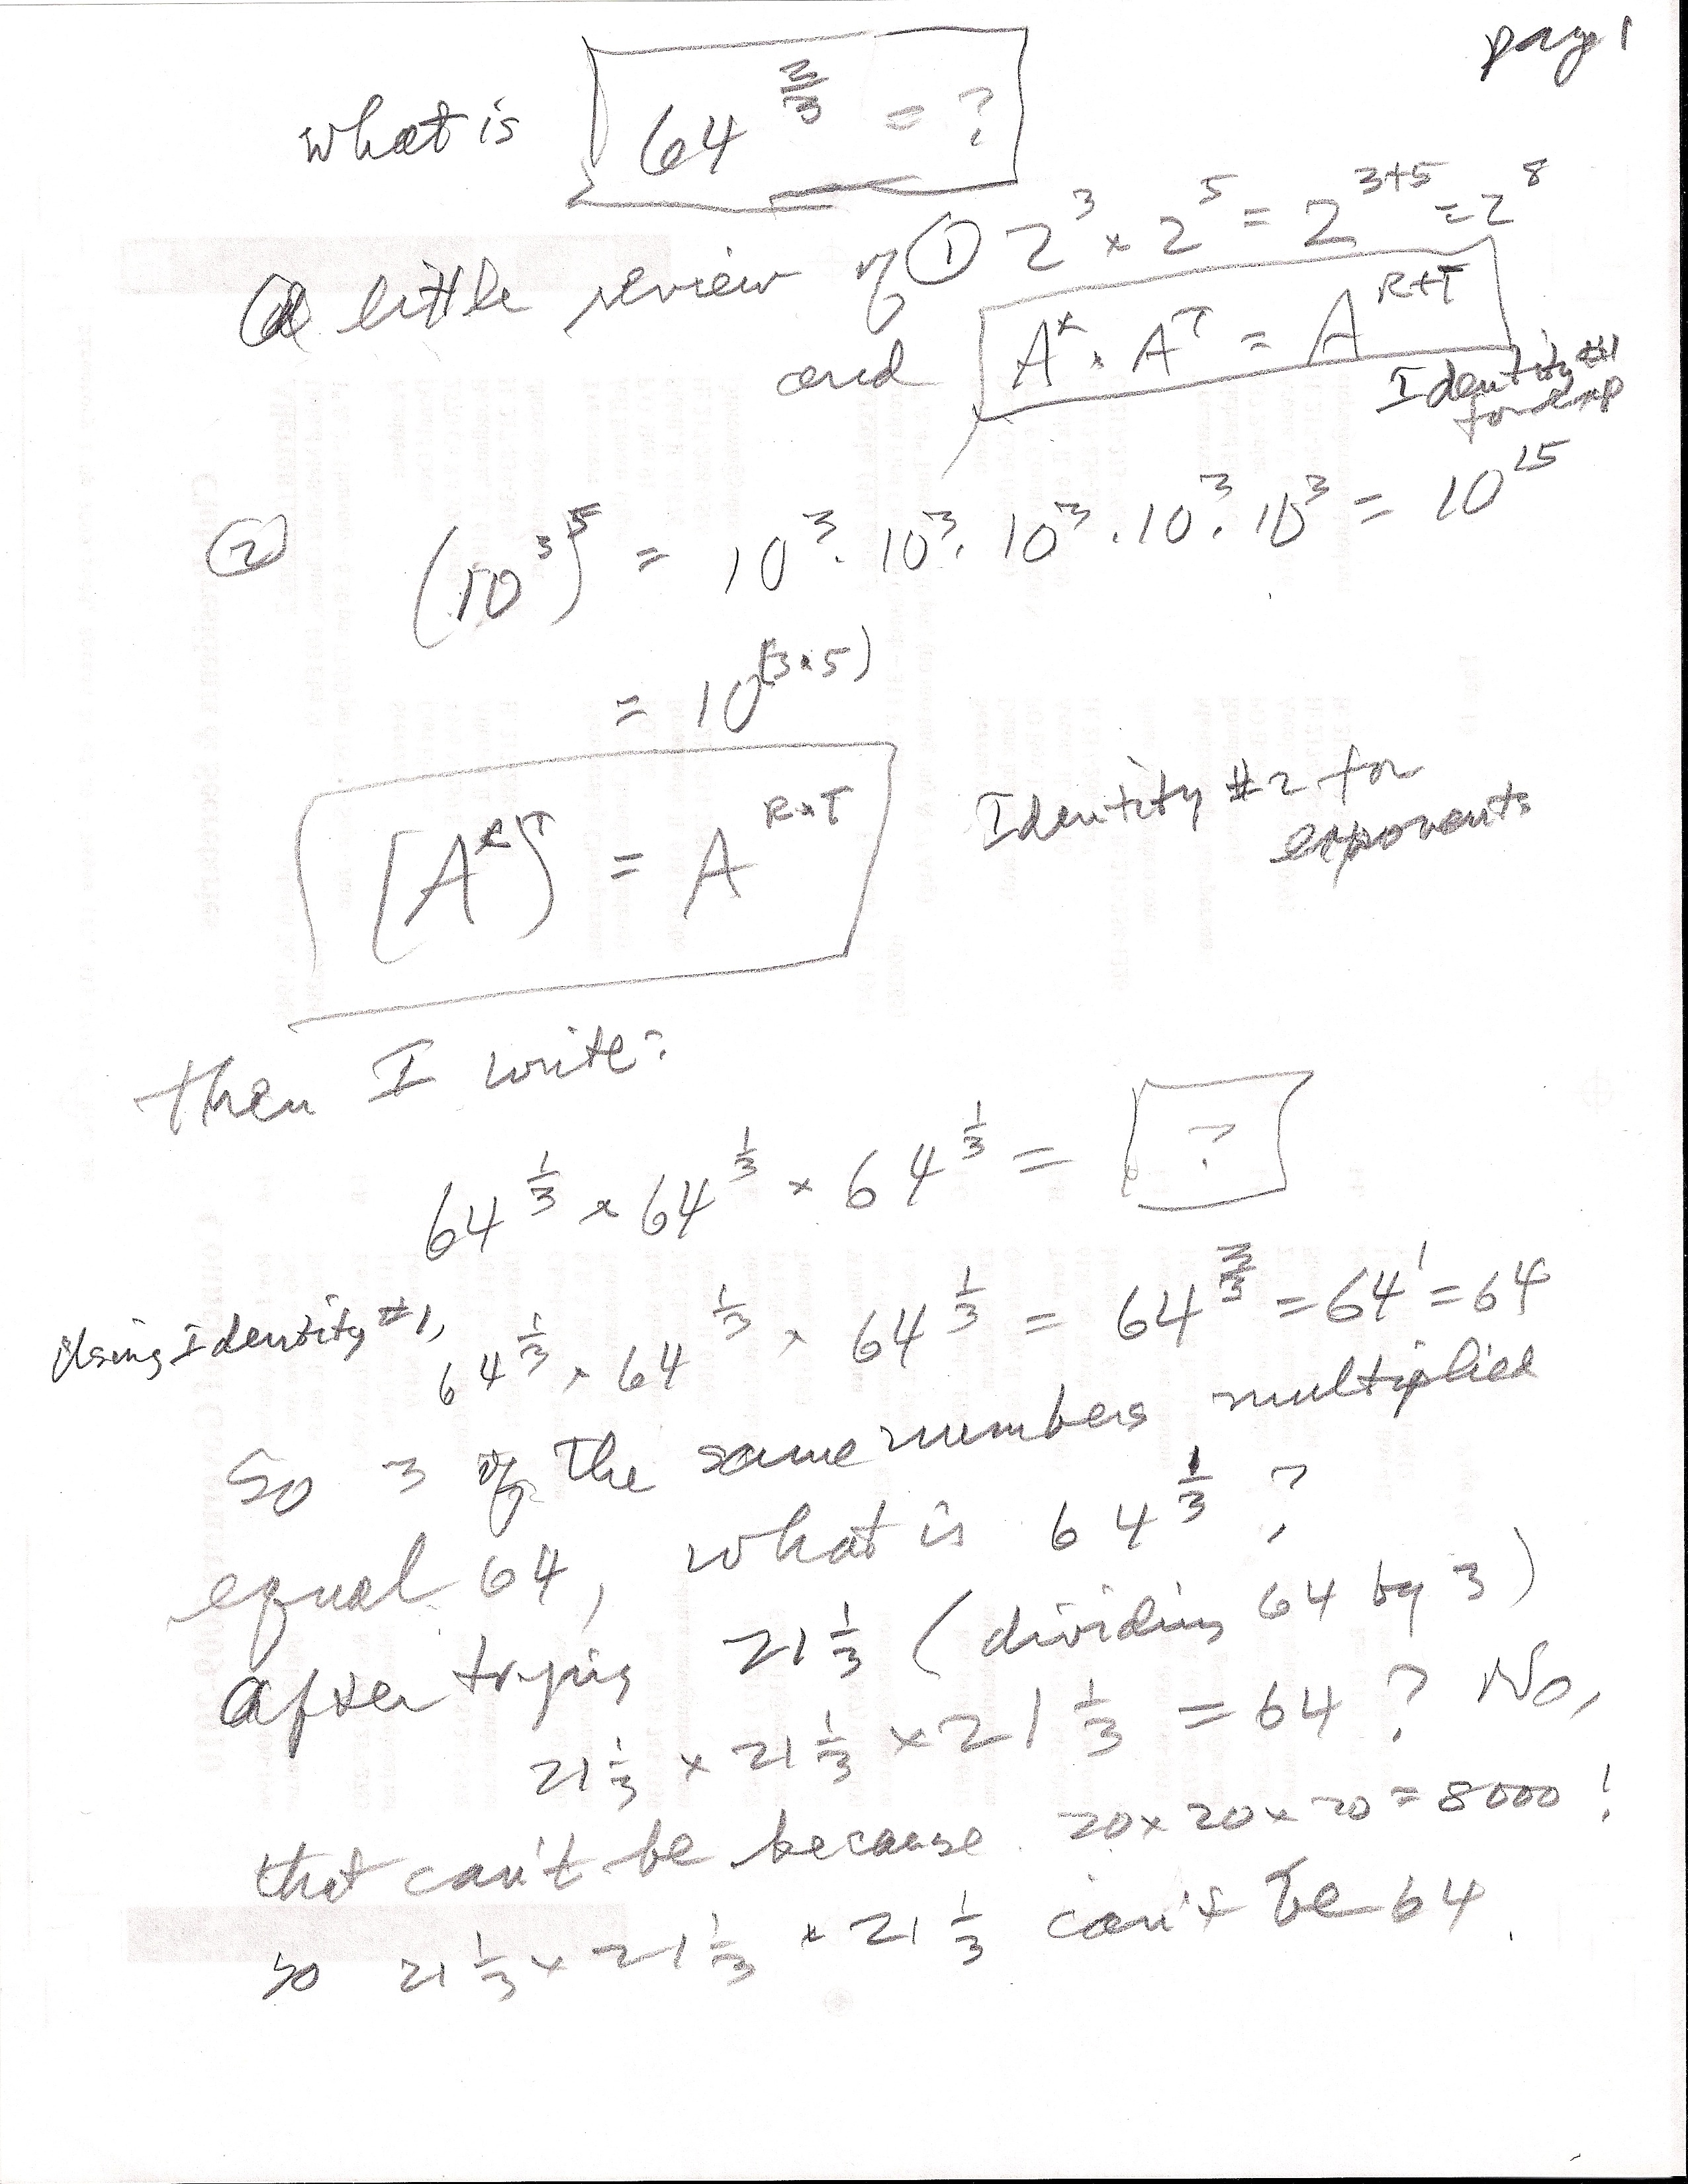 page 1
What is 64^(2/3) = ?
A little review of ① 2^3 × 2^5 = 2^(3+5) = 2^8
and A^R · A^T = A^(R+T)
Identity #1
for exp
② (10^3)^5 = 10^3 · 10^3 · 10^3 · 10^3 · 10^3 = 10^15
= 10^(3×5)
[A^R]^T = A^(R×T) Identity #2 for
exponents
then I write:
64^(1/3) × 64^(1/3) × 64^(1/3) = ?
Using Identity #1,
64^(1/3) × 64^(1/3) × 64^(1/3) = 64^(3/3) = 64^1 = 64
So 3 of the same numbers multiplied
equal 64, what is 64^(1/3) ?
after trying 21 1/3 (dividing 64 by 3)
21 1/3 × 21 1/3 × 21 1/3 = 64 ? No,
that can't be because 20 × 20 × 20 = 8000 !
so 21 1/3 × 21 1/3 × 21 1/3 can't be 64.